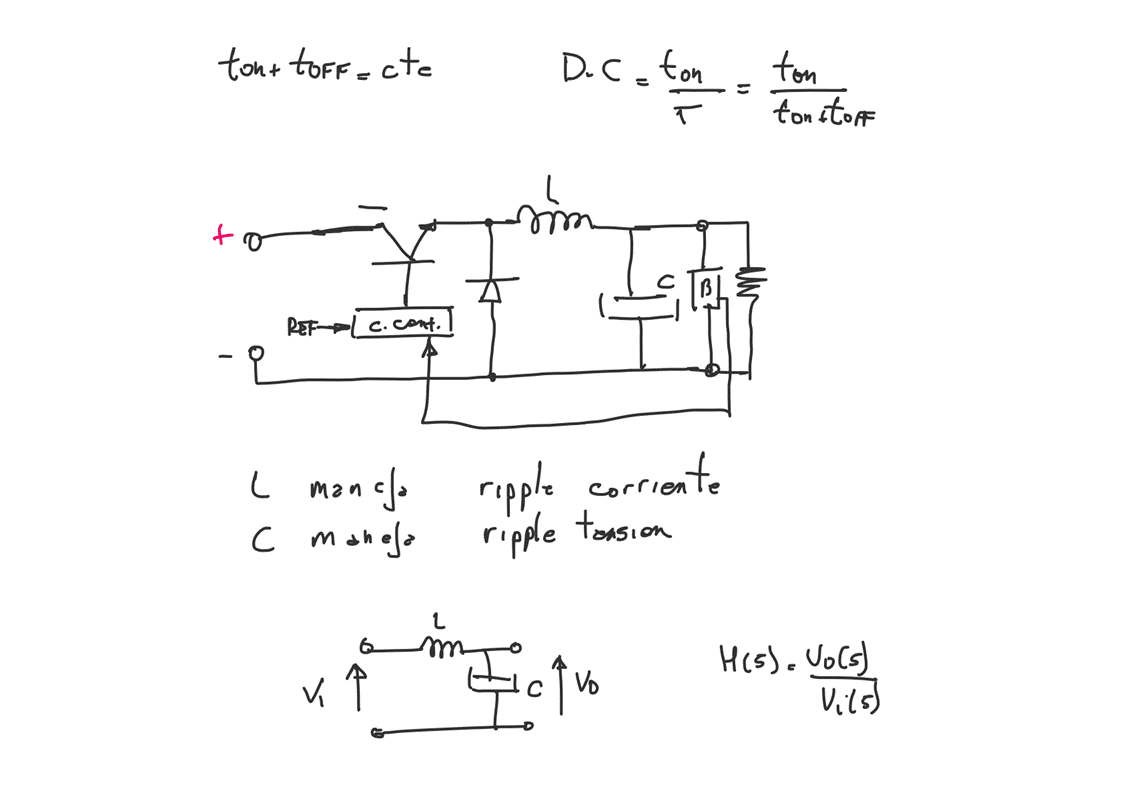 ton + tOFF = cte
D.C = ton / T = ton / ton + tOFF
L
+
C
B
REF
C. Cont.
-
L maneja ripple corriente
C maneja ripple tension
L
Vi
C
VO
H(s) = VO(s) / Vi(s)